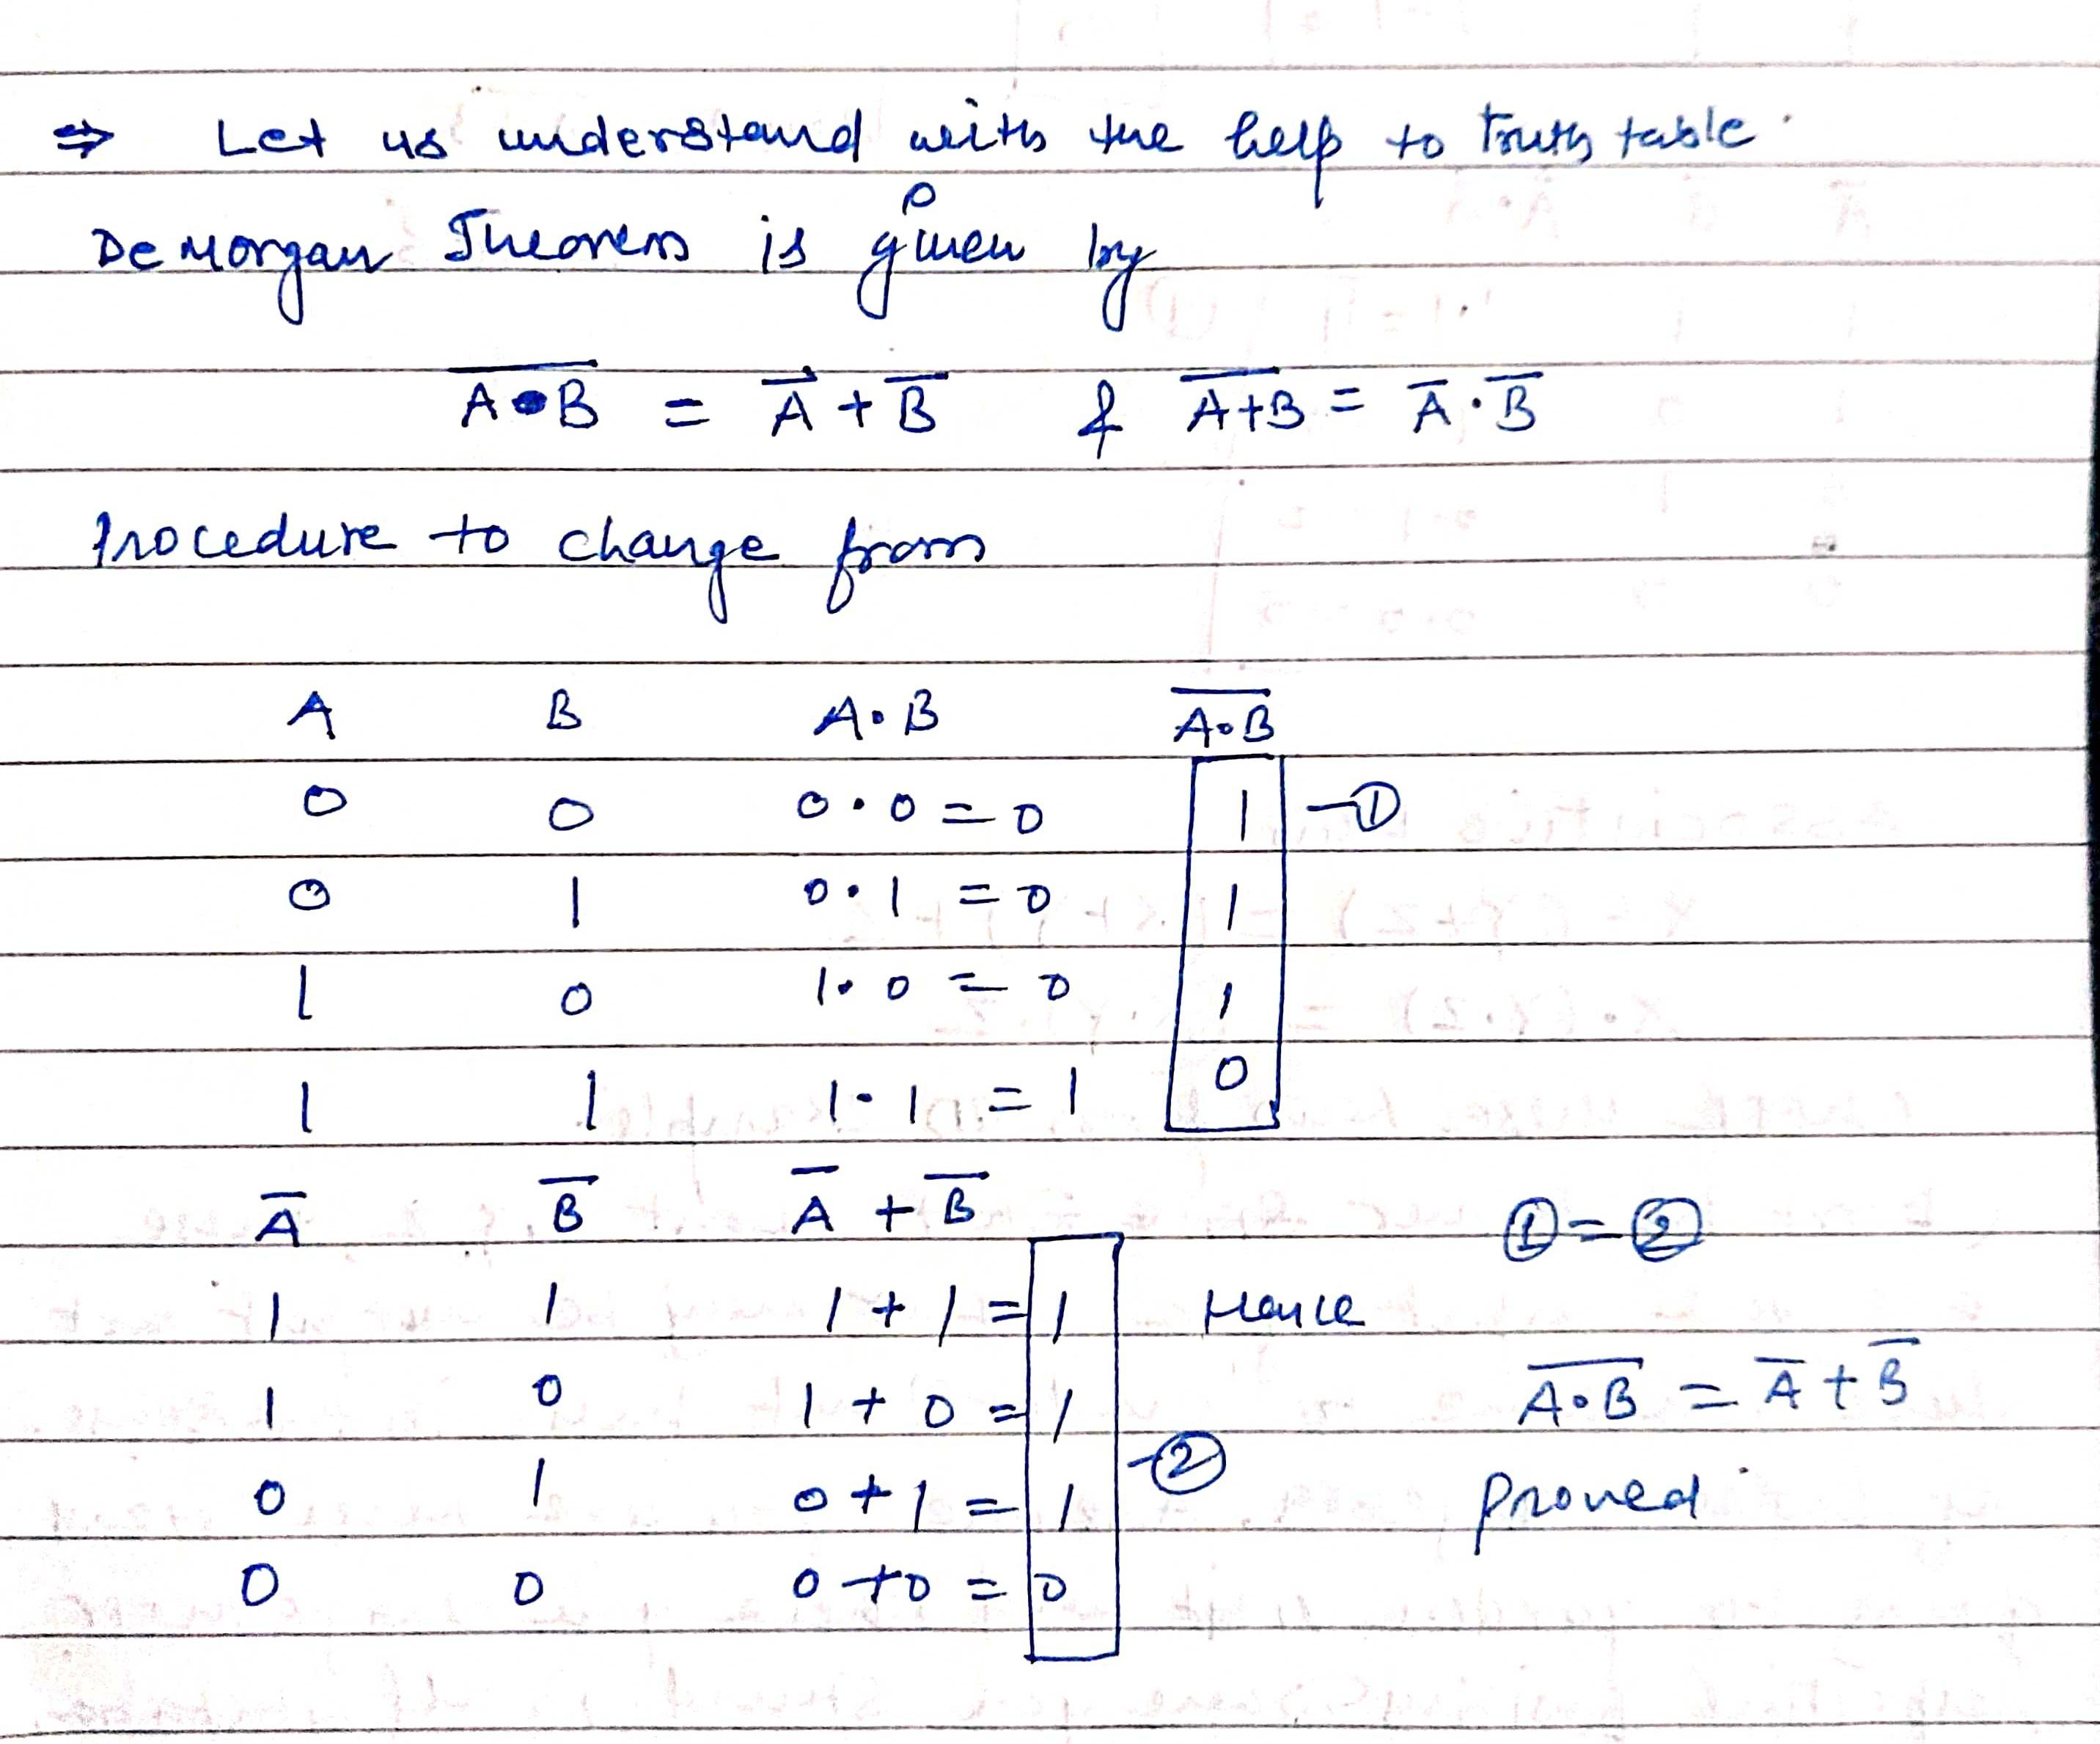 ⇒ Let us understand with the help to truth table.
De Morgan Theorem is given by
A̅•̅B̅ = A̅ + B̅ & A̅+̅B̅ = A̅ · B̅
Procedure to change from
A B A·B A̅·̅B̅
0 0 0·0=0 1 —①
0 1 0·1=0 1
1 0 1·0=0 1
1 1 1·1=1 0
A̅ B̅ A̅ + B̅ ①=②
1 1 1+1=1 Hence
1 0 1+0=1 A̅·̅B̅ = A̅ + B̅
—②
0 1 0+1=1 proved.
0 0 0+0=0